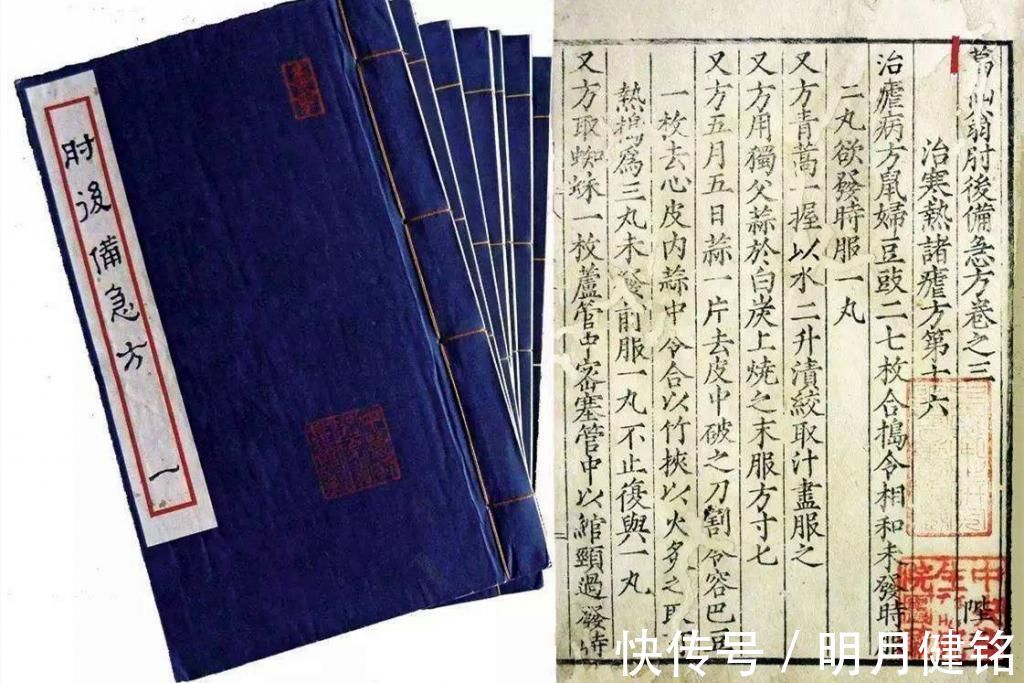 肘後備急方 一
葛仙翁肘後備急方卷之三
治寒熱諸瘧方第十六
治瘧病方鼠婦豆豉二七枚合搗令相和未發時服
二丸欲發時服一丸
又方青蒿一握以水二升漬絞取汁盡服之
又方用獨父蒜於白炭上燒之末服方寸匕
又方五月五日蒜一片去皮中破之刀割令容巴豆
一枚去心皮內蒜中令合以竹挾以火炙之取
熱搗爲三丸未發前服一丸不止復與一丸
又方取蜘蛛一枚蘆管中密塞管中以綰頸過發時
快传号 / 明月健铭